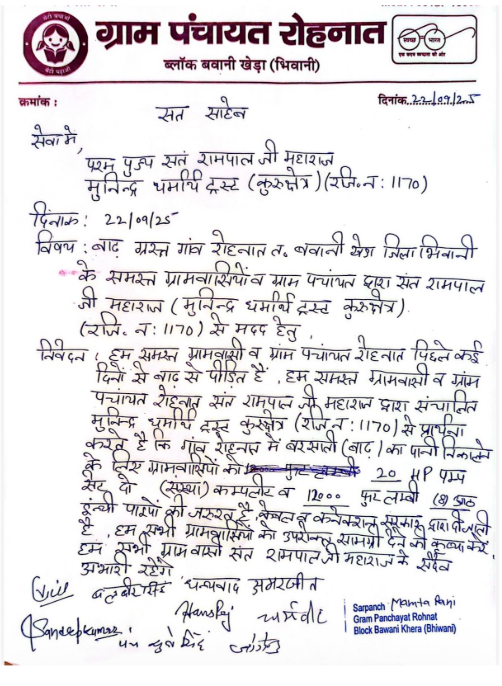 बेटी बचाओ
बेटी पढ़ाओ
ग्राम पंचायत रोहनात
स्वच्छ भारत
एक कदम स्वच्छता की ओर
ब्लॉक बवानी खेड़ा (भिवानी)
क्रमांक :
दिनांक 22/09/25
सत साहेब
सेवा में,
परम पुज्य संत रामपाल जी महाराज
मुनिन्द्र धर्मार्थ ट्रस्ट (कुरुक्षेत्र) (रजि. न : 1170)
दिनांक : 22/09/25
विषय : बाढ़ ग्रस्त गांव रोहनात त. बवानी खेड़ा जिला भिवानी
के समस्त ग्रामवासियों व ग्राम पंचायत द्वारा संत रामपाल
जी महाराज (मुनिन्द्र धर्मार्थ ट्रस्ट कुरुक्षेत्र)
(रजि. न : 1170) से मदद हेतु
निवेदन : हम समस्त ग्रामवासी व ग्राम पंचायत रोहनात पिछले कई
दिनों से बाढ़ से पीड़ित हैं, हम समस्त ग्रामवासी व ग्राम
पंचायत रोहनात संत रामपाल जी महाराज द्वारा संचालित
मुनिन्द्र धर्मार्थ ट्रस्ट कुरुक्षेत्र (रजि न : 1170) से प्रार्थना
करते है कि गांव रोहनात में बरसाती (बाढ़) का पानी निकालने
के लिए ग्रामवासियों को 20 HP पम्प
सेट दो (संख्या) कम्पलीट व 12000 फुट लम्बी (8) आठ
इंन्ची पाइपों की जरूरत है, केवल व कनेक्शन सरकार द्वारा बिजली
है, हम सभी ग्रामवासियों को उपरोक्त सामग्री देने की कृप्या करें
हम सभी ग्रामवासी संत रामपाल जी महाराज के सदैव
अभारी रहेंगे
बलबीर सिंह धन्यवाद अमरजीत
Hansraj धर्मवीर
Sandeep Kumar
Sarpanch Mamta Rani
Gram Panchayat Rohnat
Block Bawani Khera (Bhiwani)